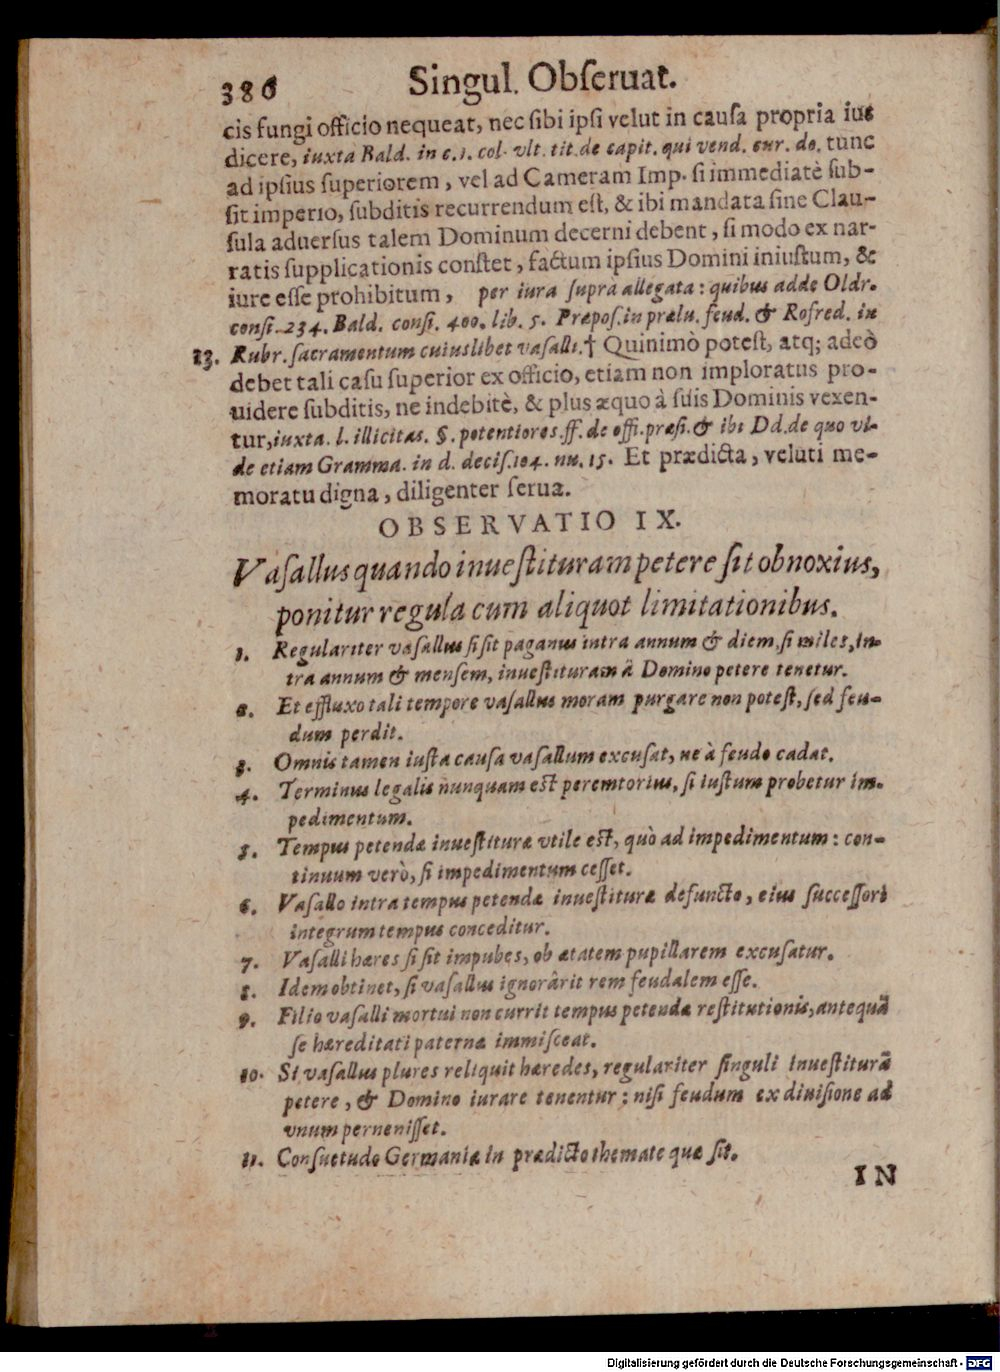 386 Singul. Obſeruat.
cis fungi officio nequeat, nec ſibi ipſi velut in cauſa propria ius
dicere, iuxta Bald. in c. 1. col. vlt. tit. de capit. qui vend. cur. de. tunc
ad ipſius ſuperiorem, vel ad Cameram Imp. ſi immediatè ſub-
ſit imperio, ſubditis recurrendum eſt, & ibi mandata ſine Clau-
ſula aduerſus talem Dominum decerni debent, ſi modo ex nar-
ratis ſupplicationis conſtet, factum ipſius Domini iniuſtum, &
iure eſſe prohibitum, per iura ſupra allegata: quibus adde Oldr.
conſi. 234. Bald. conſi. 400. lib. 5. Præpoſ. in prælu. feud. & Rofred. in
13. Rubr. ſacramentum cuiuslibet vaſalli. † Quinimò poteſt, atq; adeò
debet tali caſu ſuperior ex officio, etiam non imploratus pro-
uidere ſubditis, ne indebitè, & plus æquo à ſuis Dominis vexen-
tur, iuxta. l. illicitas. §. potentiores. ff. de offi. præſi. & ibi Dd. de quo vi-
de etiam Gramma. in d. deciſ. 104. nu. 15. Et prædicta, veluti me-
moratu digna, diligenter ſerua.
OBSERVATIO IX.
Vaſallus quando inueſtituram petere ſit obnoxius,
ponitur regula cum aliquot limitationibus.
1. Regulariter vaſallus ſi ſit paganus intra annum & diem, ſi miles, in-
tra annum & menſem, inueſtituram â Domino petere tenetur.
2. Et effluxo tali tempore vaſallus moram purgare non poteſt, ſed feu-
dum perdit.
3. Omnis tamen iuſta cauſa vaſallum excuſat, ne à feudo cadat.
4. Terminus legalis nunquam eſt peremtorius, ſi iuſtum probetur im-
pedimentum.
5. Tempus petendæ inueſtituræ vtile eſt, quò ad impedimentum: con-
tinuum verò, ſi impedimentum ceſſet.
6. Vaſallo intra tempus petendæ inueſtituræ defuncto, eius ſucceſſori
integrum tempus conceditur.
7. Vaſalli hæres ſi ſit impubes, ob ætatem pupillarem excuſatur.
8. Idem obtinet, ſi vaſallus ignorârit rem feudalem eſſe.
9. Filio vaſalli mortui non currit tempus petendæ reſtitutionis, antequã
ſe hæreditati paternæ immiſceat.
10. Si vaſallus plures reliquit hæredes, regulariter ſinguli inueſtiturã
petere, & Domino iurare tenentur: niſi feudum ex diuiſione ad
vnum perneniſſet.
11. Conſuetudo Germaniæ in prædicto themate quæ ſit.
IN
Digitalisierung gefördert durch die Deutsche Forschungsgemeinschaft - DFG